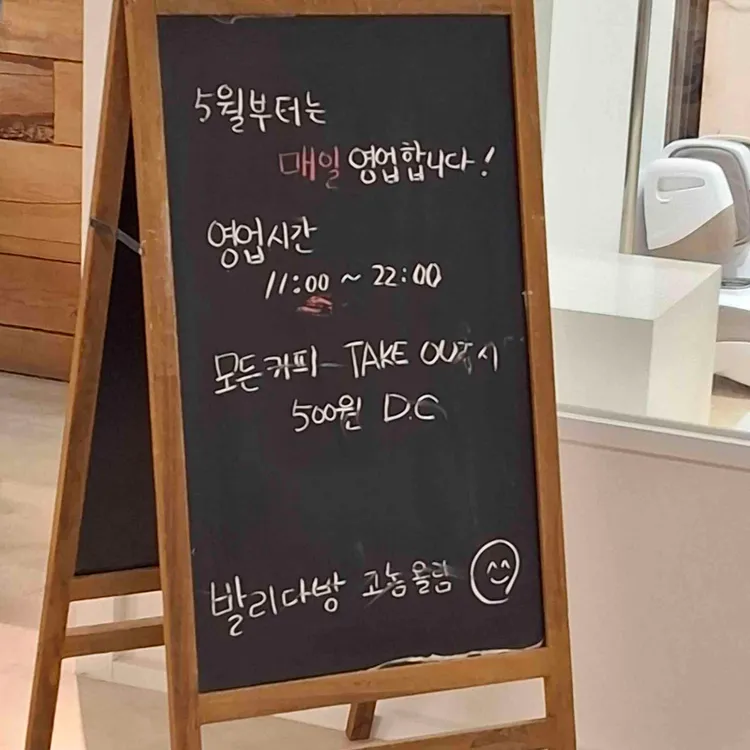 5월부터는
매일 영업합니다!
영업시간
11:00 ~ 22:00
모든커피 TAKE OUT 시
500원 D.C
발리다방 고놈올림